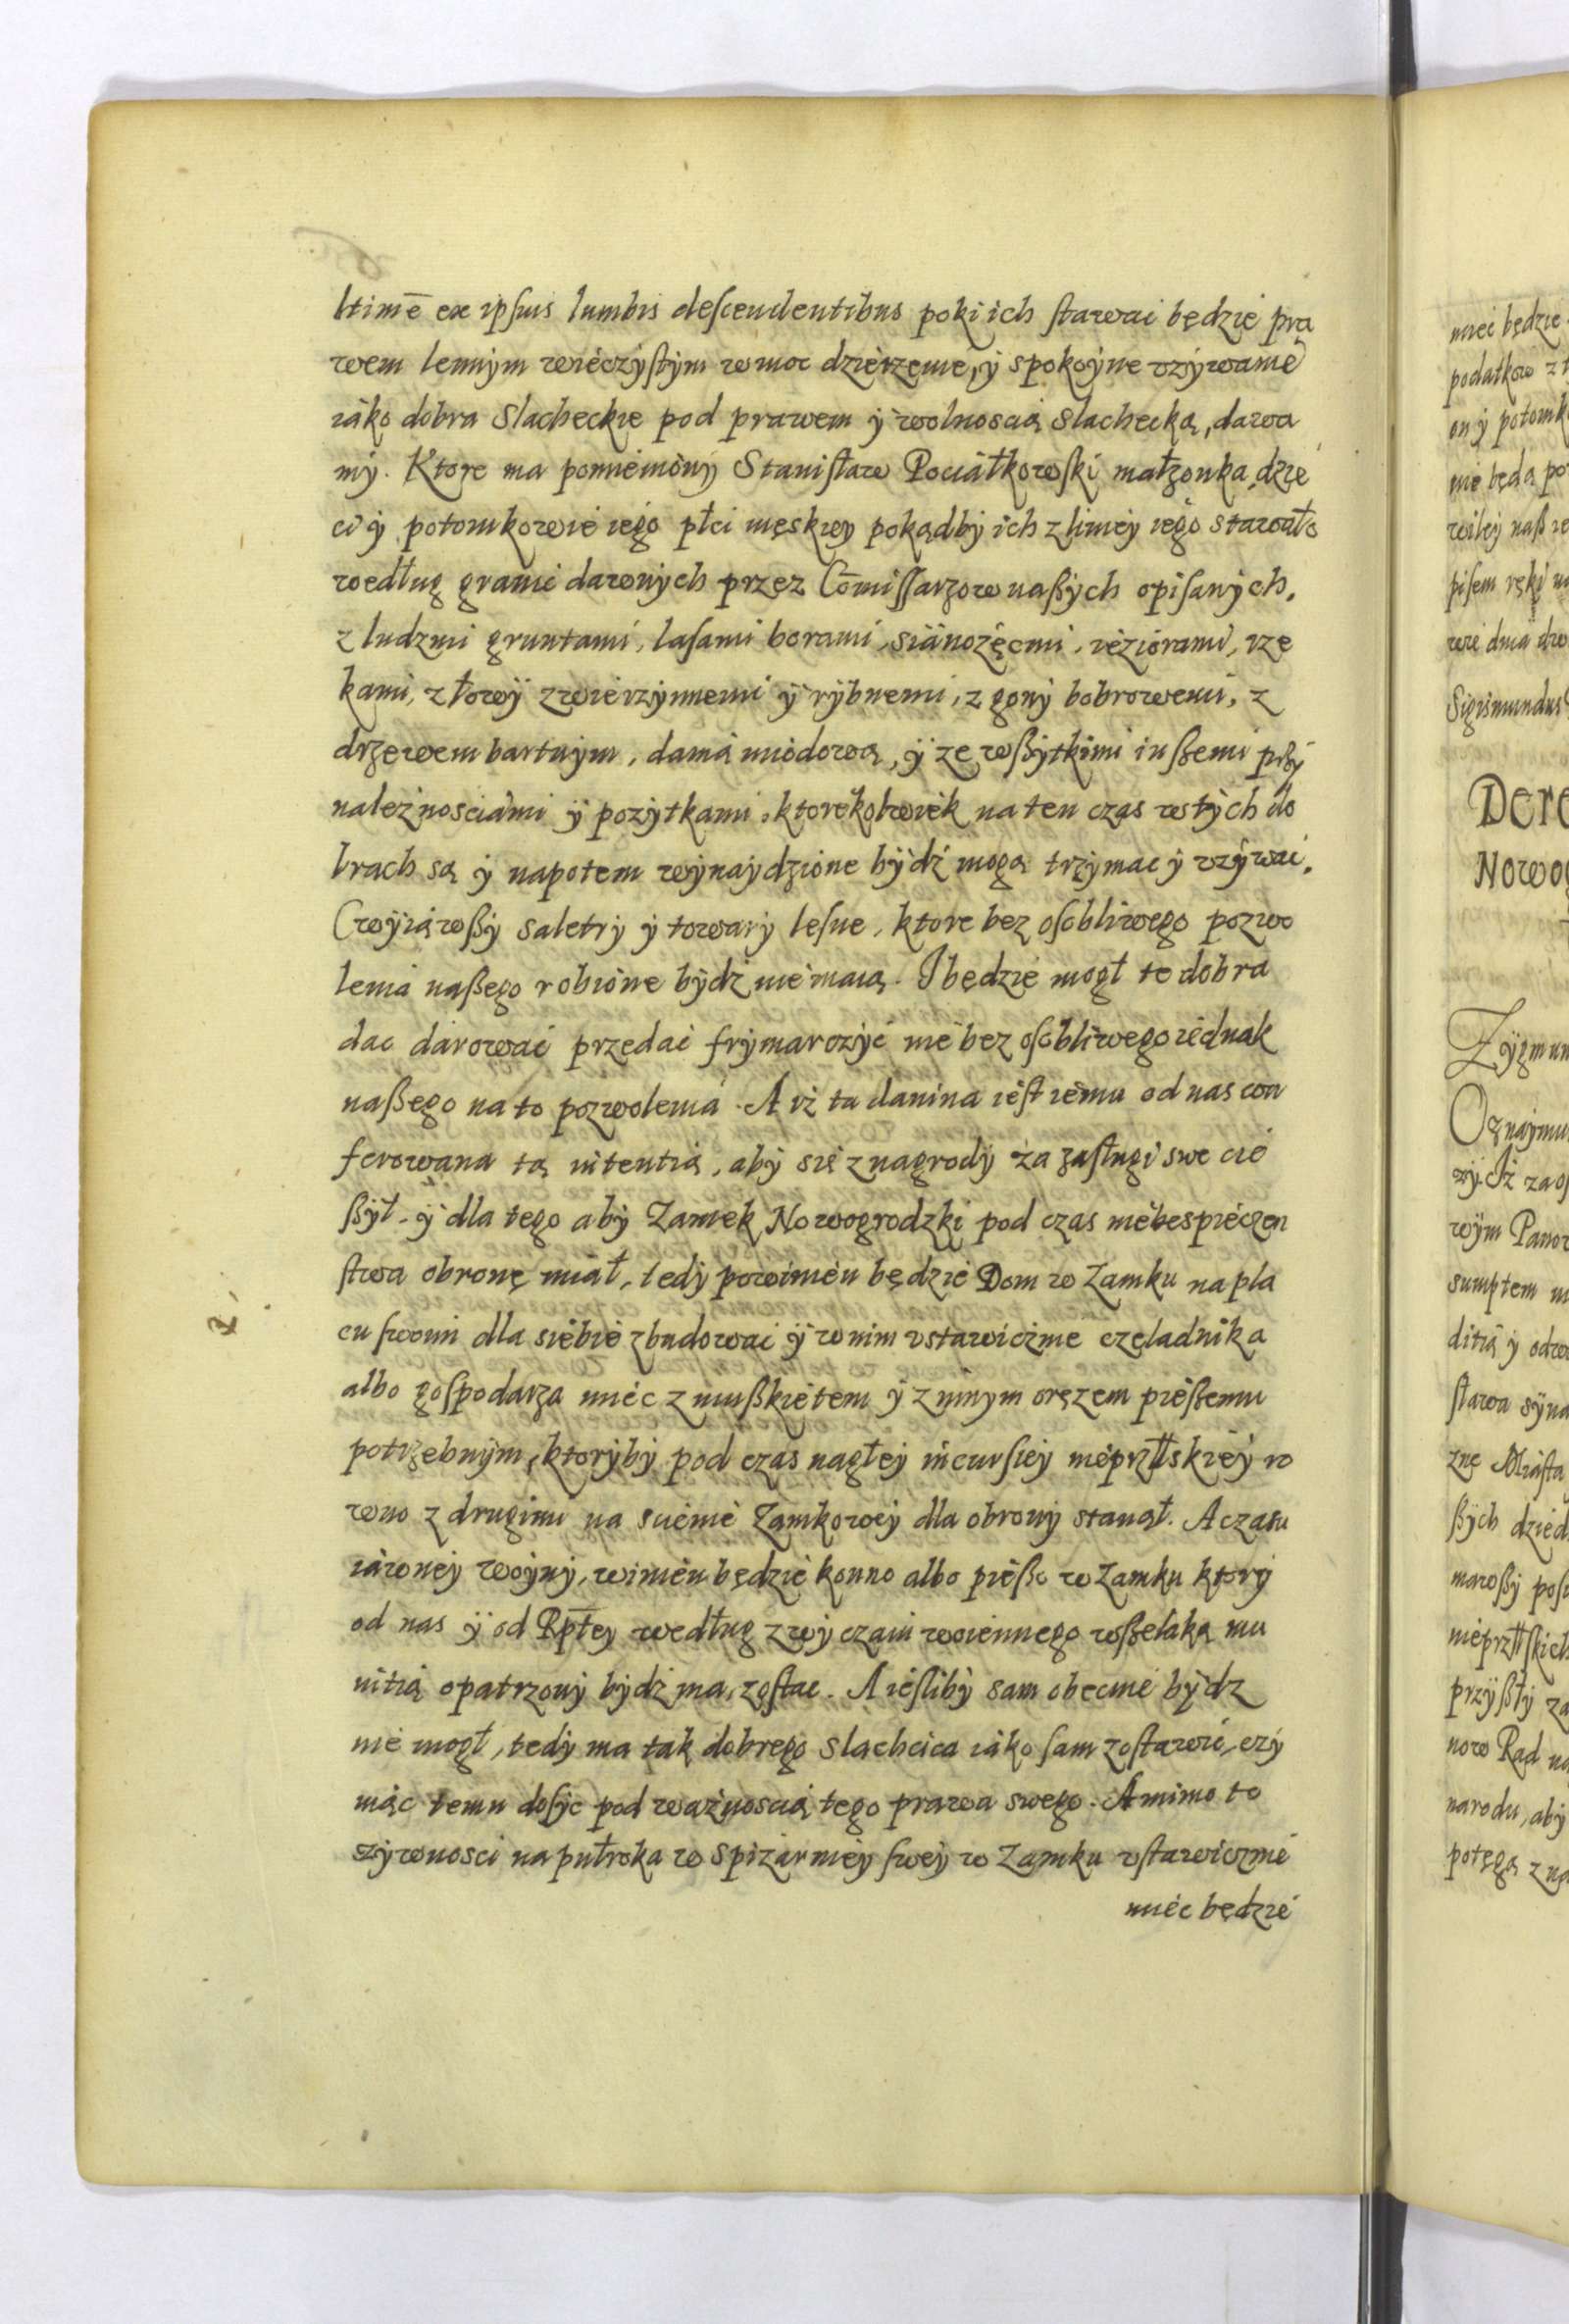 ltimē ex ipſius lumbis deſcendentibus poki ich ſtawać będzie pra
wem lennym wieczyſtym w moc dzierzenie, y spokoyne vzywanie
iáko dobra Slacheckie pod prawem y wolnoscią Slachecką, dawa
my. Ktore ma pomieniony Staniſław Pociátkowſki małżonka dzie
ci y potomkowie iego płci męskiey pokądby ich z liniey iego stawáło
według granic dawnych przez Cōmiſſarzow naßych opiſanych,
z ludzmi gruntami, laſami borami, siánozęćmi, iezioràmi, rze
kami, z łowy zwierzynnemi y rybnemi, z gony bobrowemi, z
drzewem bartnym, daniá miodową, y ze wßytkimi inßemi prży
należnosciámi y pożytkami, ktorekolwiek na ten czas w tych do
brach są y napotem wynaydzione bydź mogą trzymac y vzywac.
(wyiąwßy saletry y towary leſne, ktore bez oſobliwego pozwo
lenia naßego robione bydź nie maią. I będzie mogł te dobra
dac dárowac przedac frymarczyć nie bez oſobliwego iednak
naßego na to pozwolenia. A iż ta danina ieſt iemu od nas con
ferowana tą intentią, aby się z nagrody za zaſługi swe cie
ßył, y dla tego aby Zamek Nowogrodzki pod czas niebespieczen
ſtwa obronę miał, tedy powinien będzie Dom w Zamku na pla
cu ſwoim dla siebie zbudowac y w nim vstawicznie czeladnika
albo goſpodarza miec z mußkietem y z innym orężem pießemu
potrzebnym, ktoryby pod czas nagłey incurſiey nieprzłſkiey ro
wno z drugimi na scienie Zamkowey dla obrony stanął. A czaſu
iáwney woyny, winien będzie konno albo pießo w Zamku ktory
od nas y od Rpłey według zwyczaiu woiennego wßelaką mu
nitią opatrzony bydź ma, zoſtac. A ieſliby sam obecnie bydz
nie mogł, tedy ma tak dobrego Slachcica iáko ſam zoſtawić, czy
niąc temu doſyc pod ważnoscią tego prawa swego. A mimo to
żywnosci na pułroka w Spiżarniey ſwey w Zamku vſtawicznie
miéc będzie